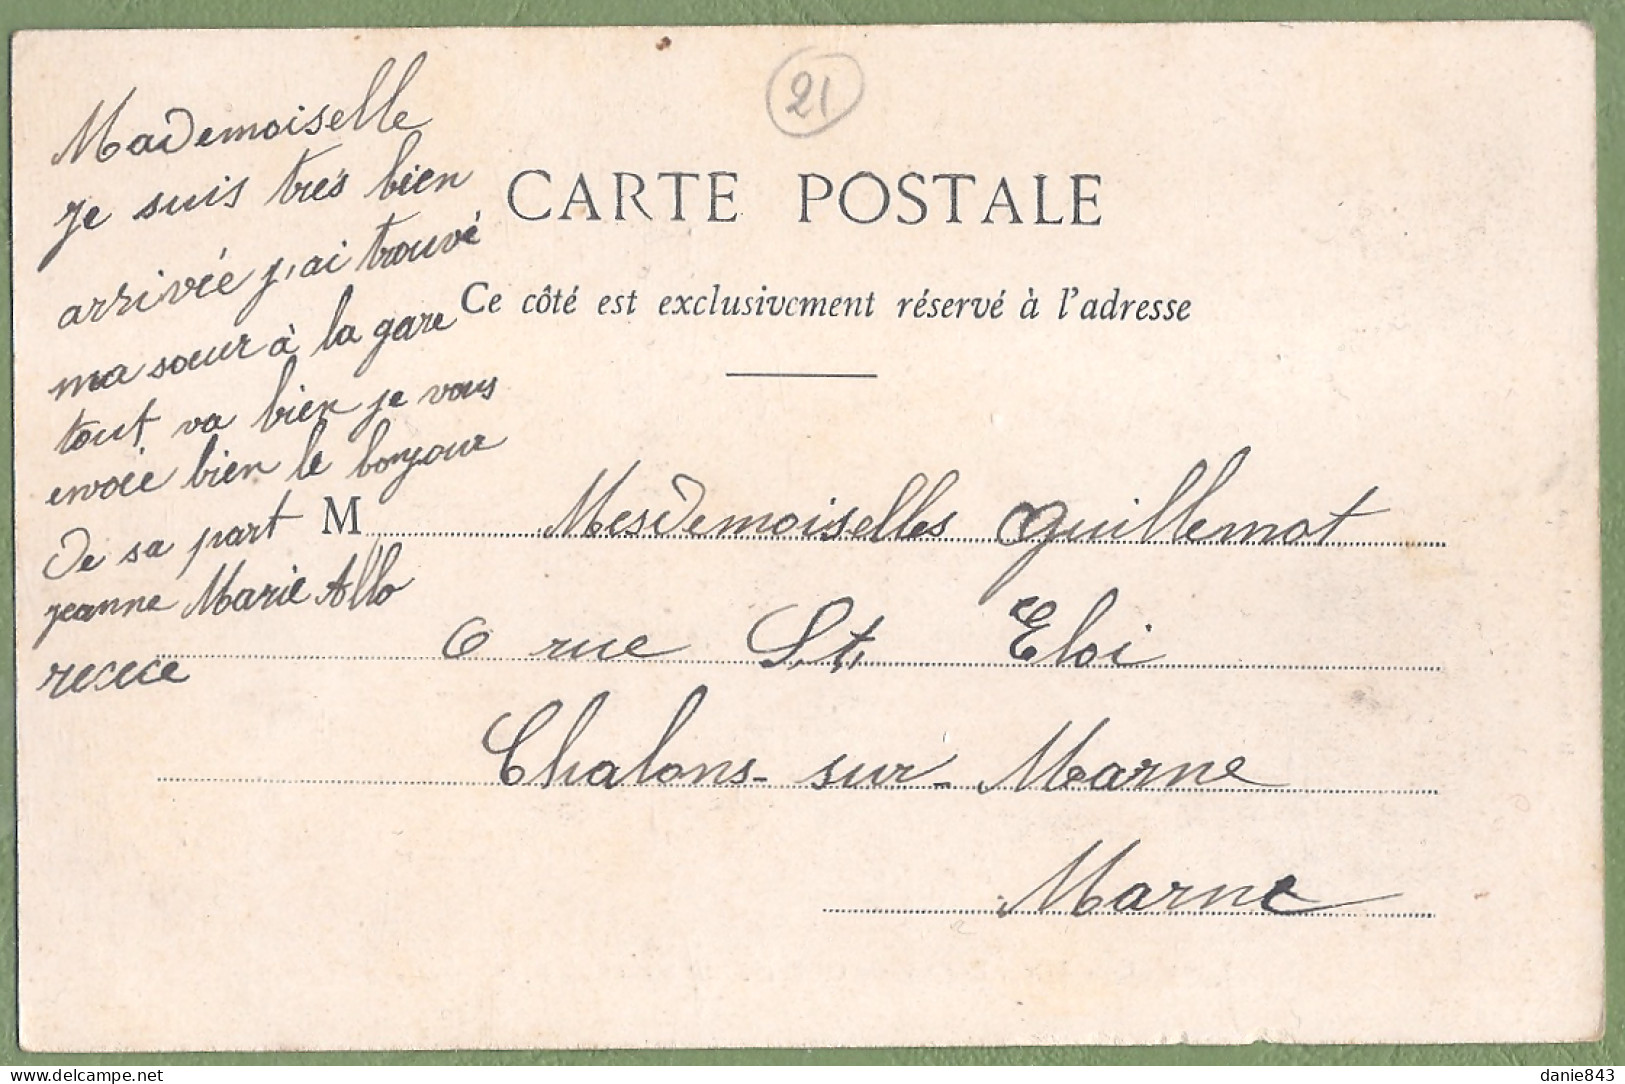 21
Mademoiselle
je suis très bien
arrivée j'ai trouvé
ma soeur à la gare
tout va bien je vous
envoie bien le bonjour
De sa part
jeanne Marie Allo
CARTE POSTALE
Ce côté est exclusivement réservé à l'adresse
M Mesdemoiselles Guillemot
6 rue St Eloi
Chalons-sur-Marne
Marne
delcampe.net
danie843